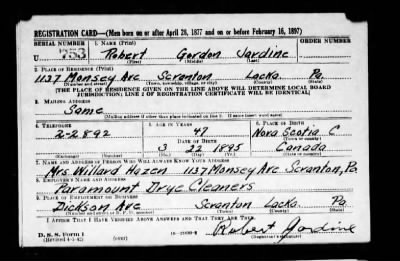 REGISTRATION CARD—(Men born on or after April 28, 1877 and on or before February 16, 1897)
SERIAL NUMBER 1. NAME (Print) ORDER NUMBER
U 753 Robert Gordon Jardine
(First) (Middle) (Last)
2. PLACE OF RESIDENCE (Print)
1137 Monsey Ave Scranton Lacka. Pa.
(Number and street) (Town, township, village, or city) (County) (State)
[THE PLACE OF RESIDENCE GIVEN ON THE LINE ABOVE WILL DETERMINE LOCAL BOARD
JURISDICTION; LINE 2 OF REGISTRATION CERTIFICATE WILL BE IDENTICAL]
3. MAILING ADDRESS
Same
[Mailing address if other than place indicated on line 2. If same insert word same]
4. TELEPHONE 5. AGE IN YEARS 6. PLACE OF BIRTH
2-2892 47 Nova Scotia C
DATE OF BIRTH (Town or county)
3 22 1895 Canada
(Exchange) (Number) (Mo.) (Day) (Yr.) (State or country)
7. NAME AND ADDRESS OF PERSON WHO WILL ALWAYS KNOW YOUR ADDRESS
Mrs. Willard Hazen 1137 Monsey Ave Scranton, Pa.
8. EMPLOYER'S NAME AND ADDRESS
Paramount Drye Cleaners
9. PLACE OF EMPLOYMENT OR BUSINESS
Dickson Ave Scranton Lacka. Pa.
(Number and street or R. F. D. number) (Town) (County) (State)
I AFFIRM THAT I HAVE VERIFIED ABOVE ANSWERS AND THAT THEY ARE TRUE.
D. S. S. Form 1
(Revised 4-1-42) (over) Robert Jardine
(Registrant's signature)